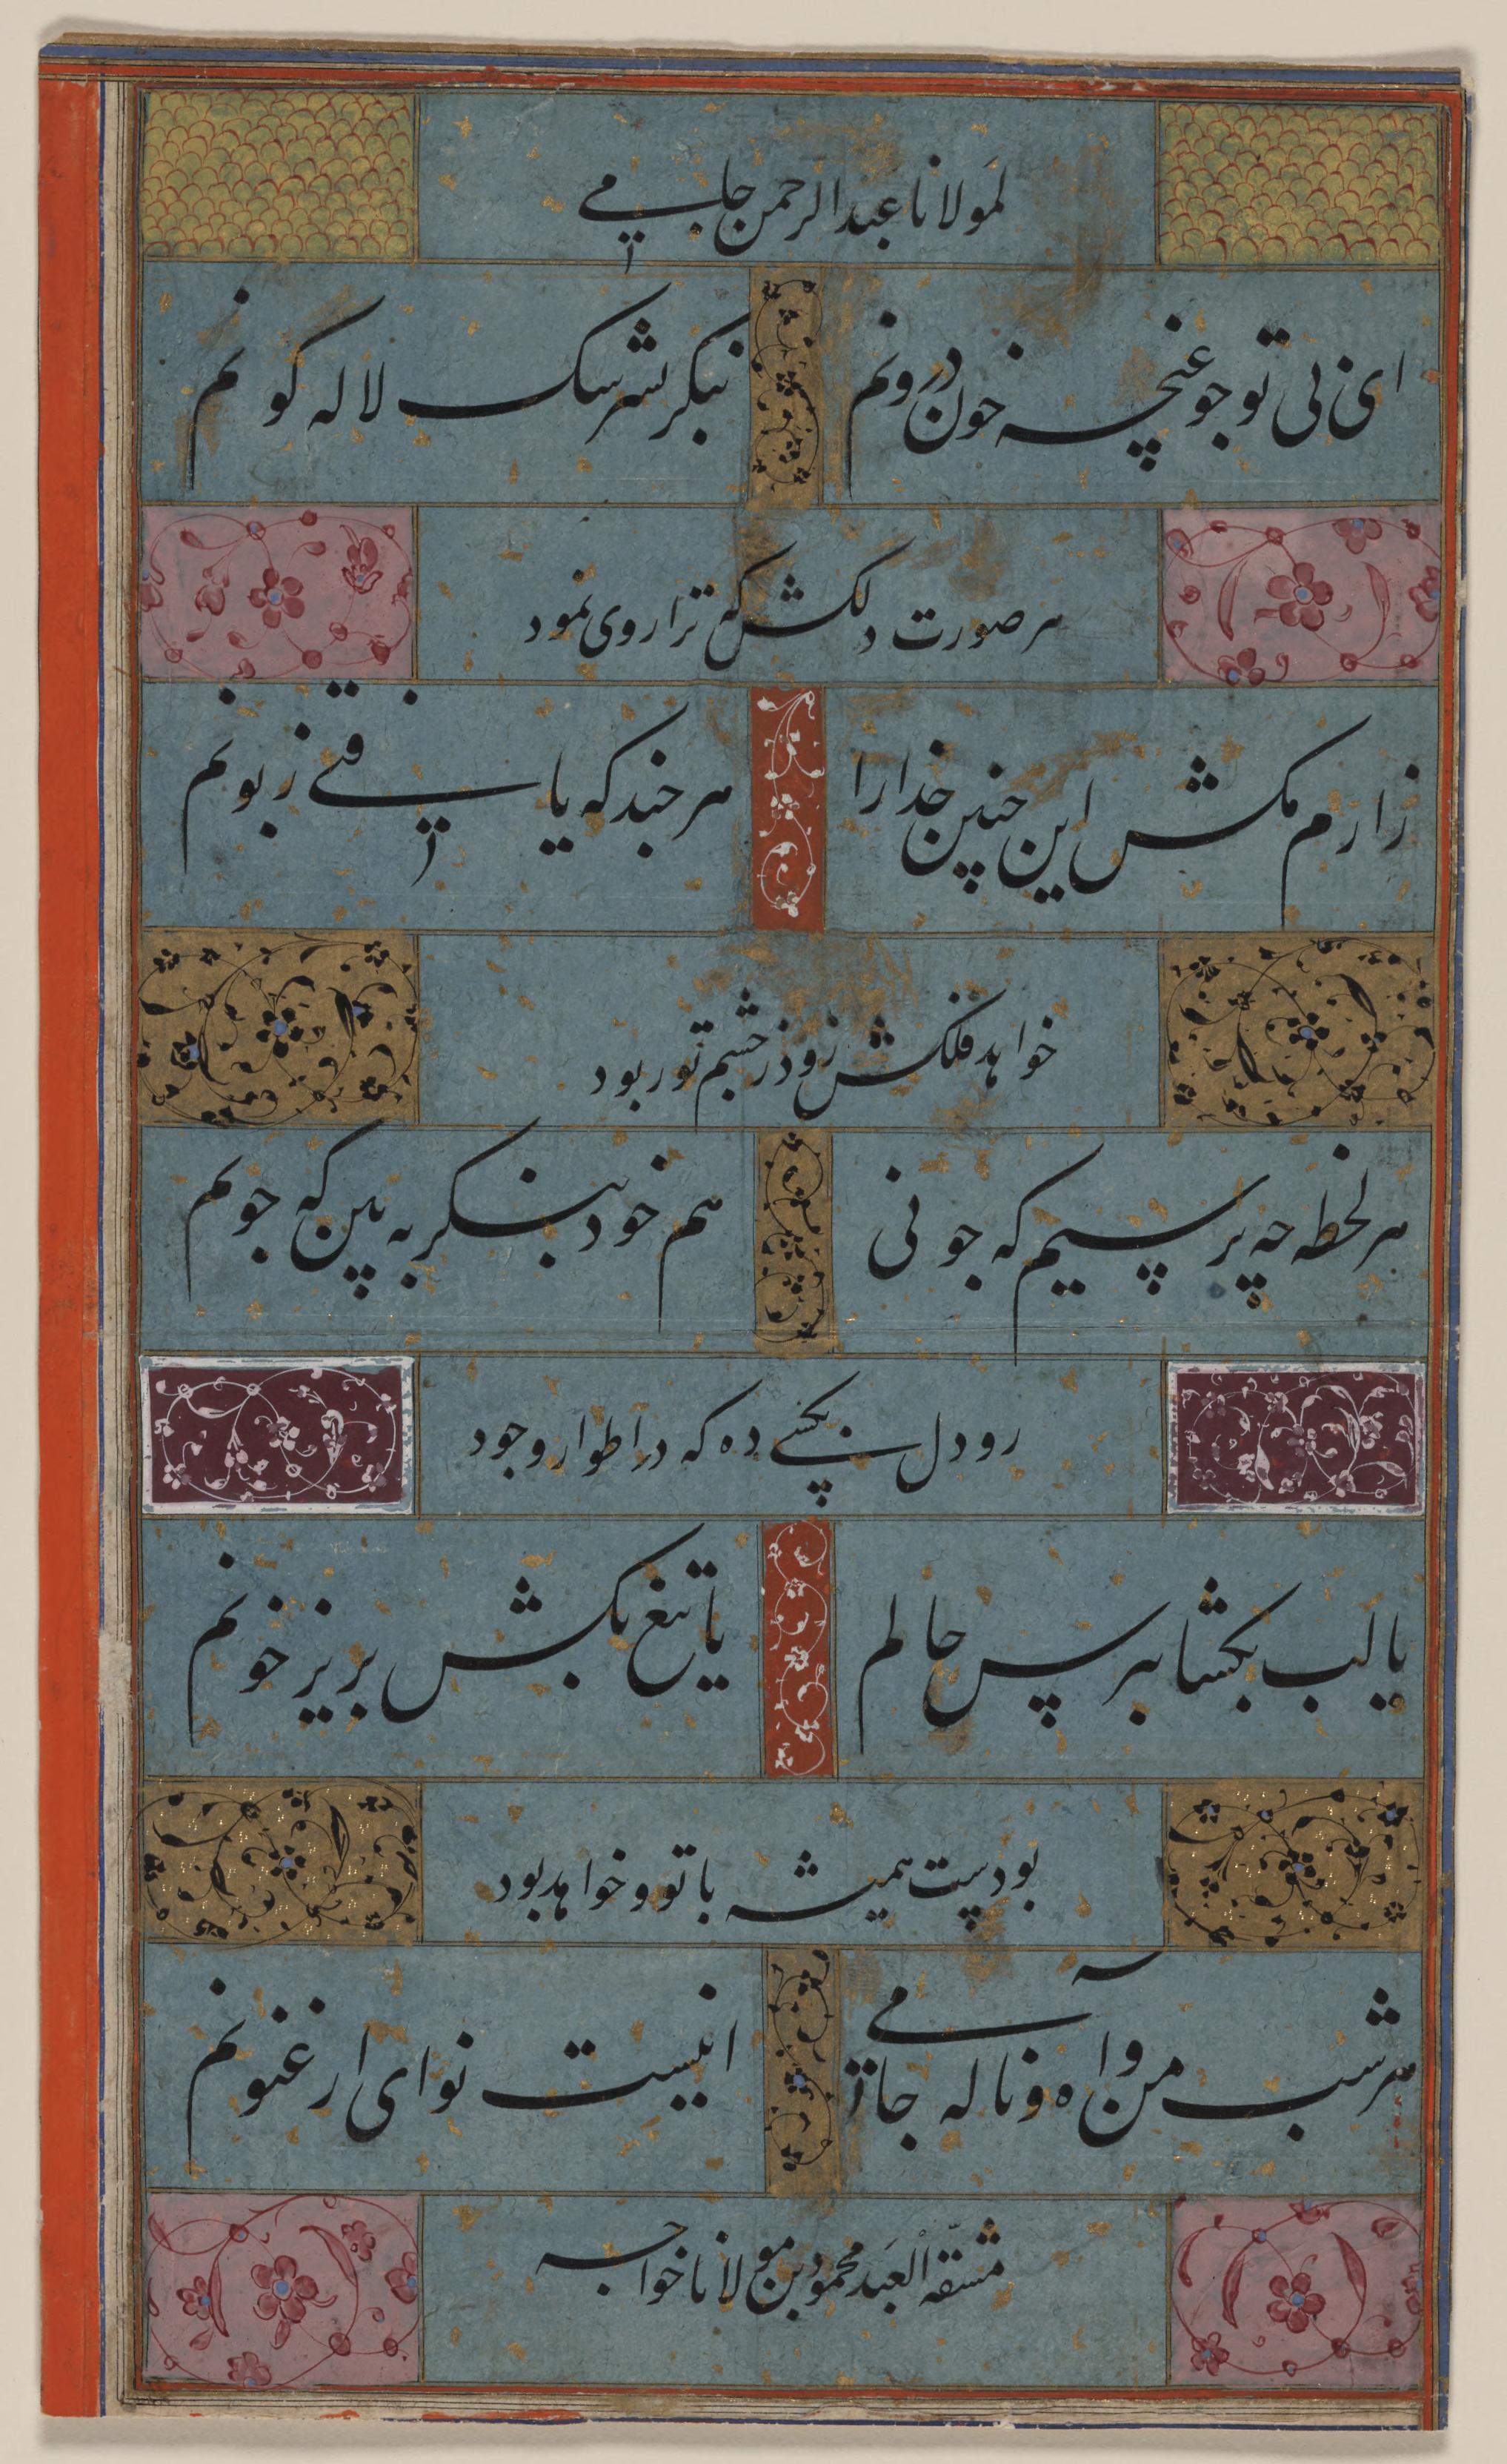 لمولانا عبدالرحمن جامی
ای بی تو چو غنچه خون درونم بنکر بسرشک لاله کونم
هر صورت دلکش که ترا روی نمود
زارم مکش این چنین خدارا هر چند که یافتی زبونم
خواهد فلکش زود ز چشم تو ربود
هر لحظه چه پرسیم که چونی هم خود بنکر ببین که چونم
رو دل بکسی ده که در اطوار وجود
یا لب بکشا بپرس حالم یا تیغ بکش بریز خونم
بودست همیشه با تو و خواهد بود
هر شب من و آه و ناله جامی اینست نوای ارغنونم
مشقه العبد محمود بن مولانا خواجه